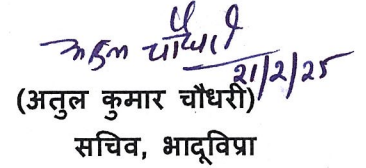 अतुल चौधरी
21/2/25
(अतुल कुमार चौधरी)
सचिव, भादूविप्रा